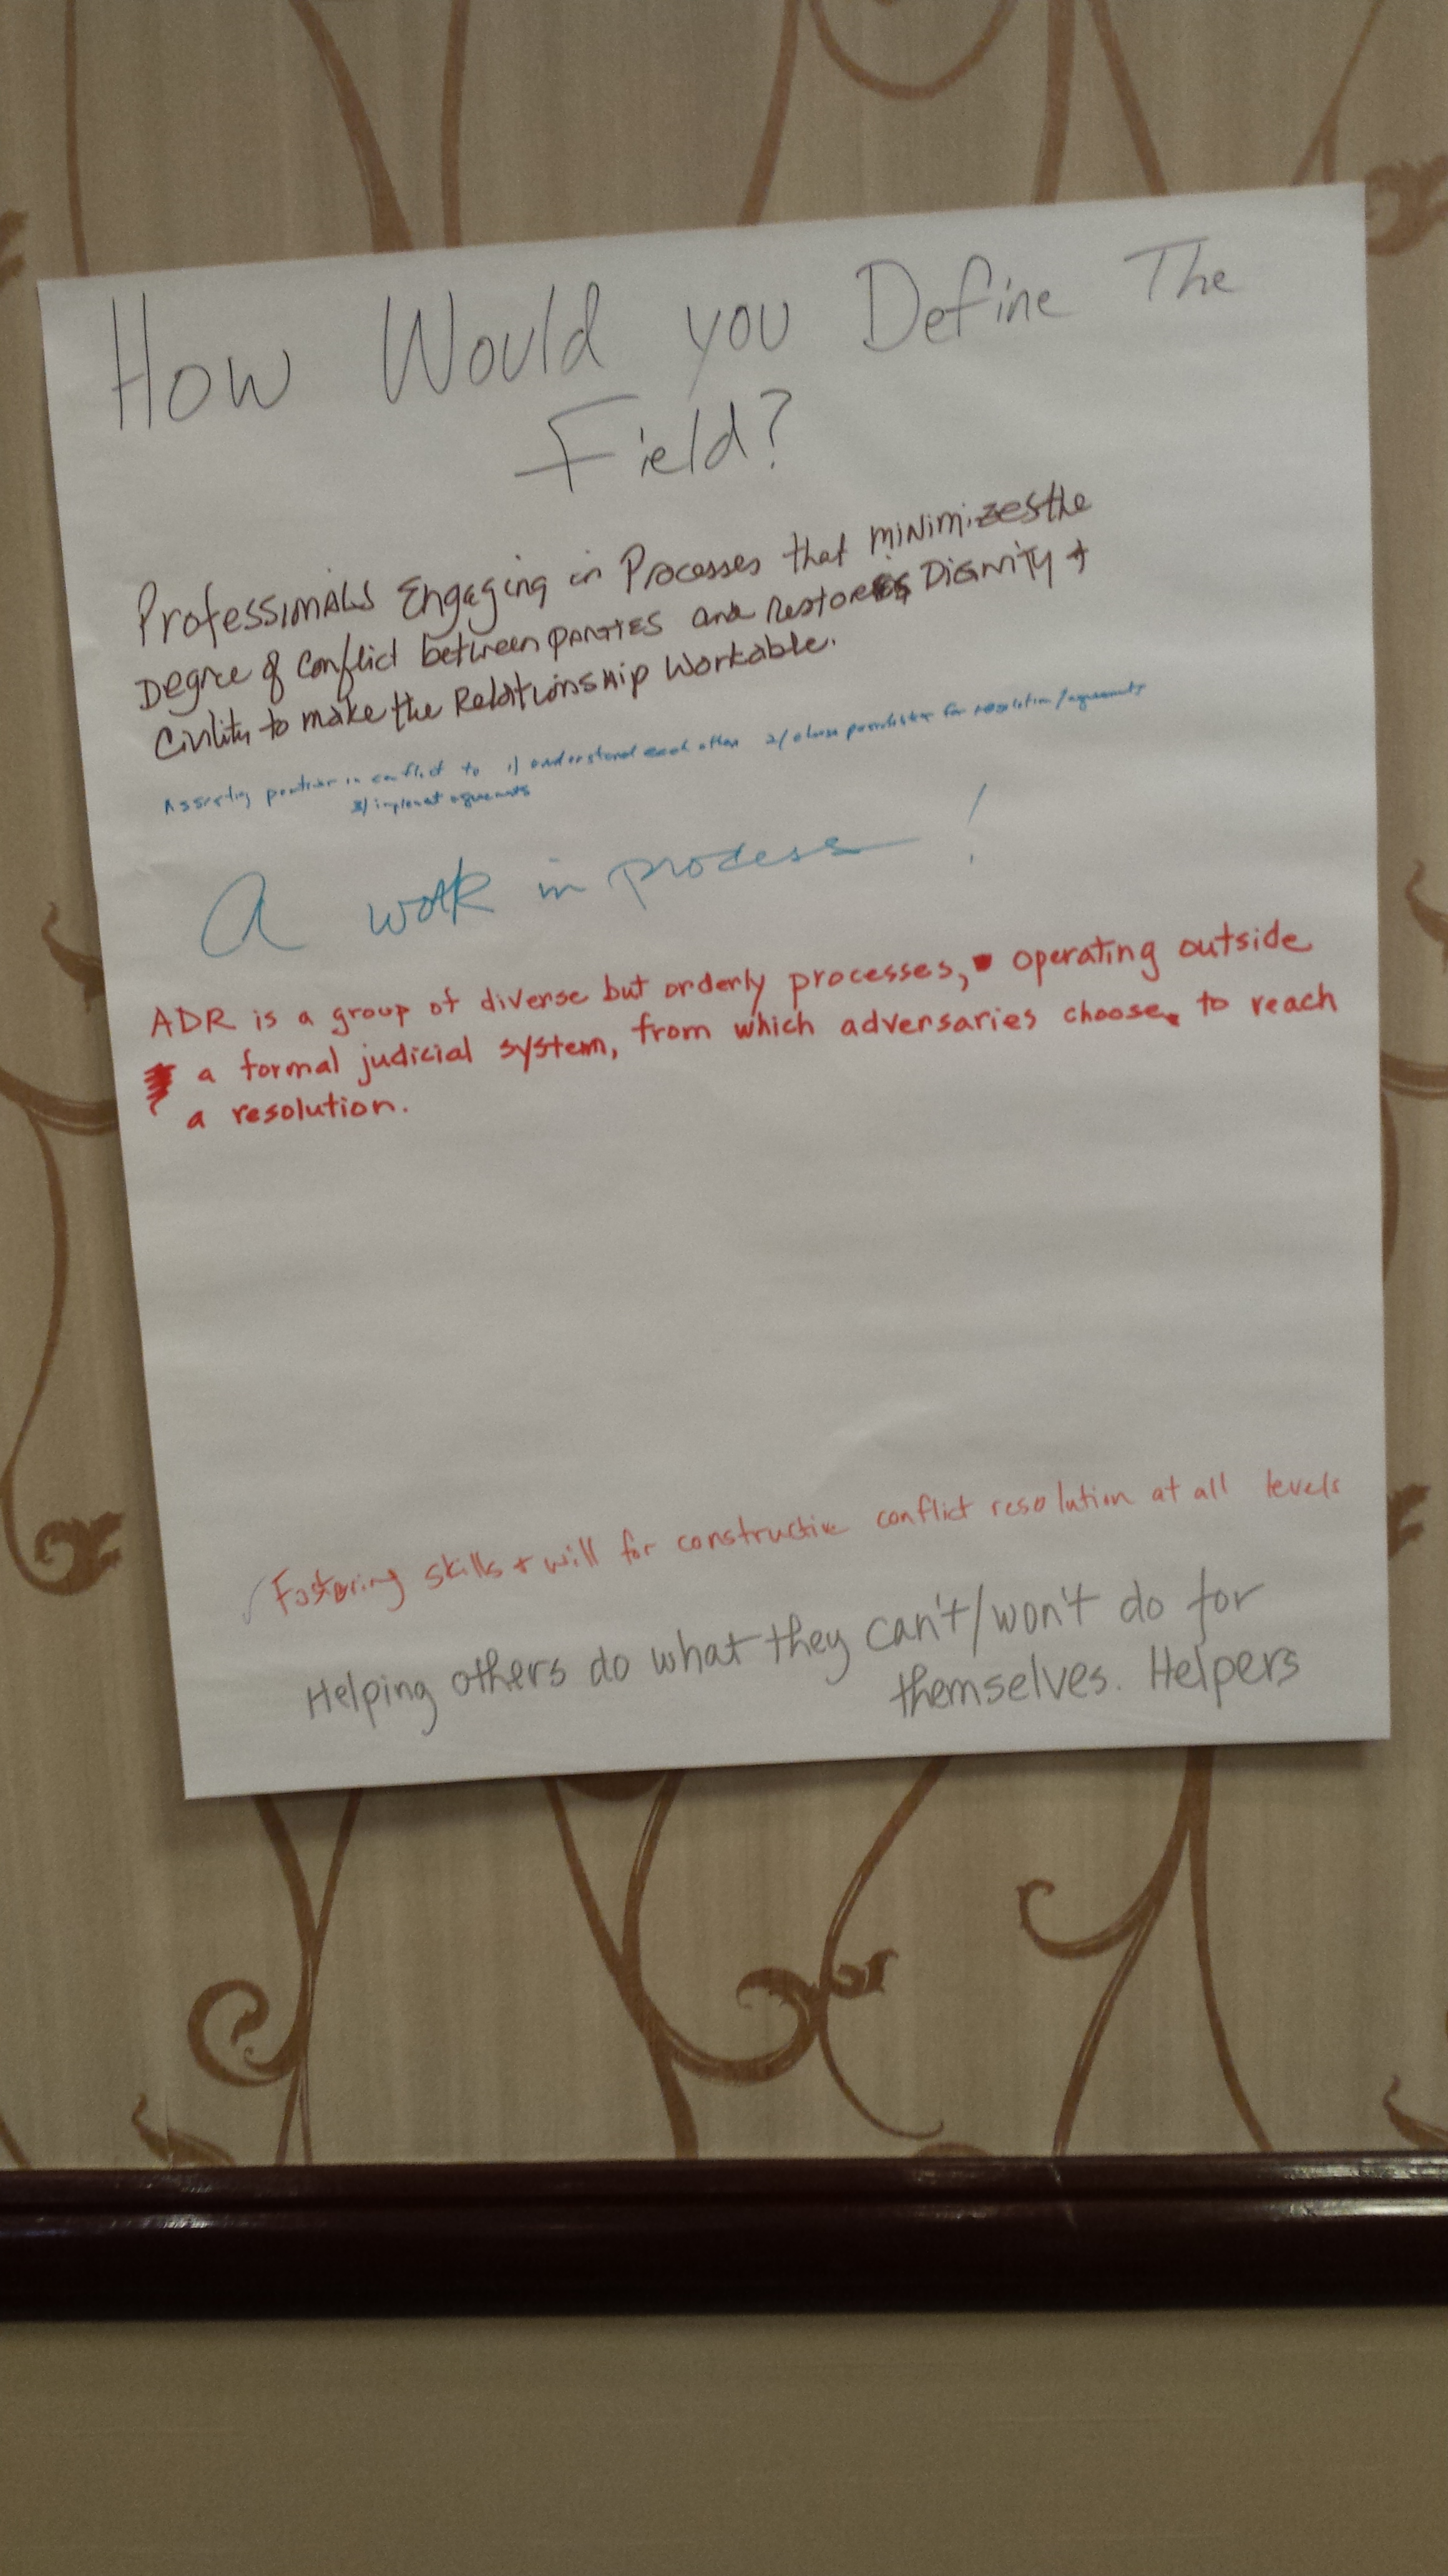 How Would you Define The
Field?
Professionals Engaging in Processes that minimizes the
Degree of Conflict between parties and restores Dignity +
Civility to make the Relationship Workable.
Assisting in conflict to 1) understand each other 2) for resolution/agreements
3) agreements
A work in process!
ADR is a group of diverse but orderly processes, operating outside
a formal judicial system, from which adversaries choose to reach
a resolution.
Fostering skills + will for constructive conflict resolution at all levels
Helping others do what they can't/won't do for
themselves. Helpers